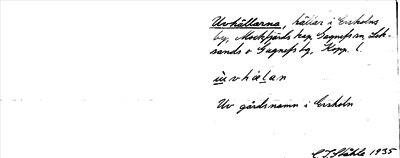 Uvhällarna, hällar i Ersholns
by, Mockfjärds kap, Gagnefs sn, Lek-
sands o Gagnefs tg, Kopp. l.
ùvhälan
Uv gårdsnamn i Ersholn
C.I. Ståhle 1935